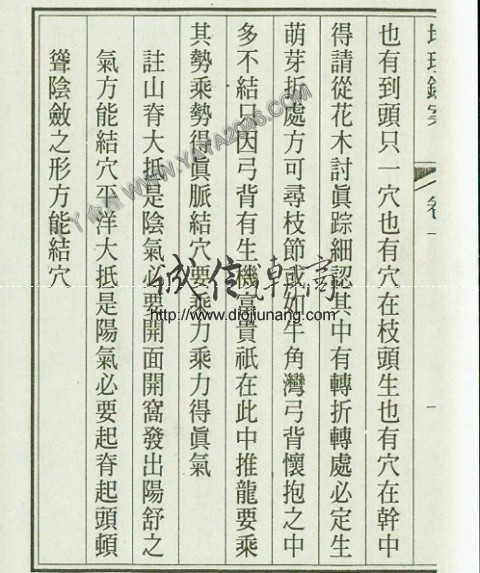 也有到頭只一穴也有穴在枝頭生也有穴在幹中
得請從花木討眞踪細認其中有轉折轉處必定生
萌芽折處方可尋枝節或如牛角灣弓背懷抱之中
多不結只因弓背有生機富貴祇在此中推龍要乘
其勢乘勢得眞脈結穴要乘力乘力得眞氣
註山脊大抵是陰氣必要開面開窩發出陽舒之
氣方能結穴平洋大抵是陽氣必要起脊起頭頓
聳陰斂之形方能結穴
卷一
一
丫俞 WWW.YAYA2046.COM
誠信
http://www.diojunang.com